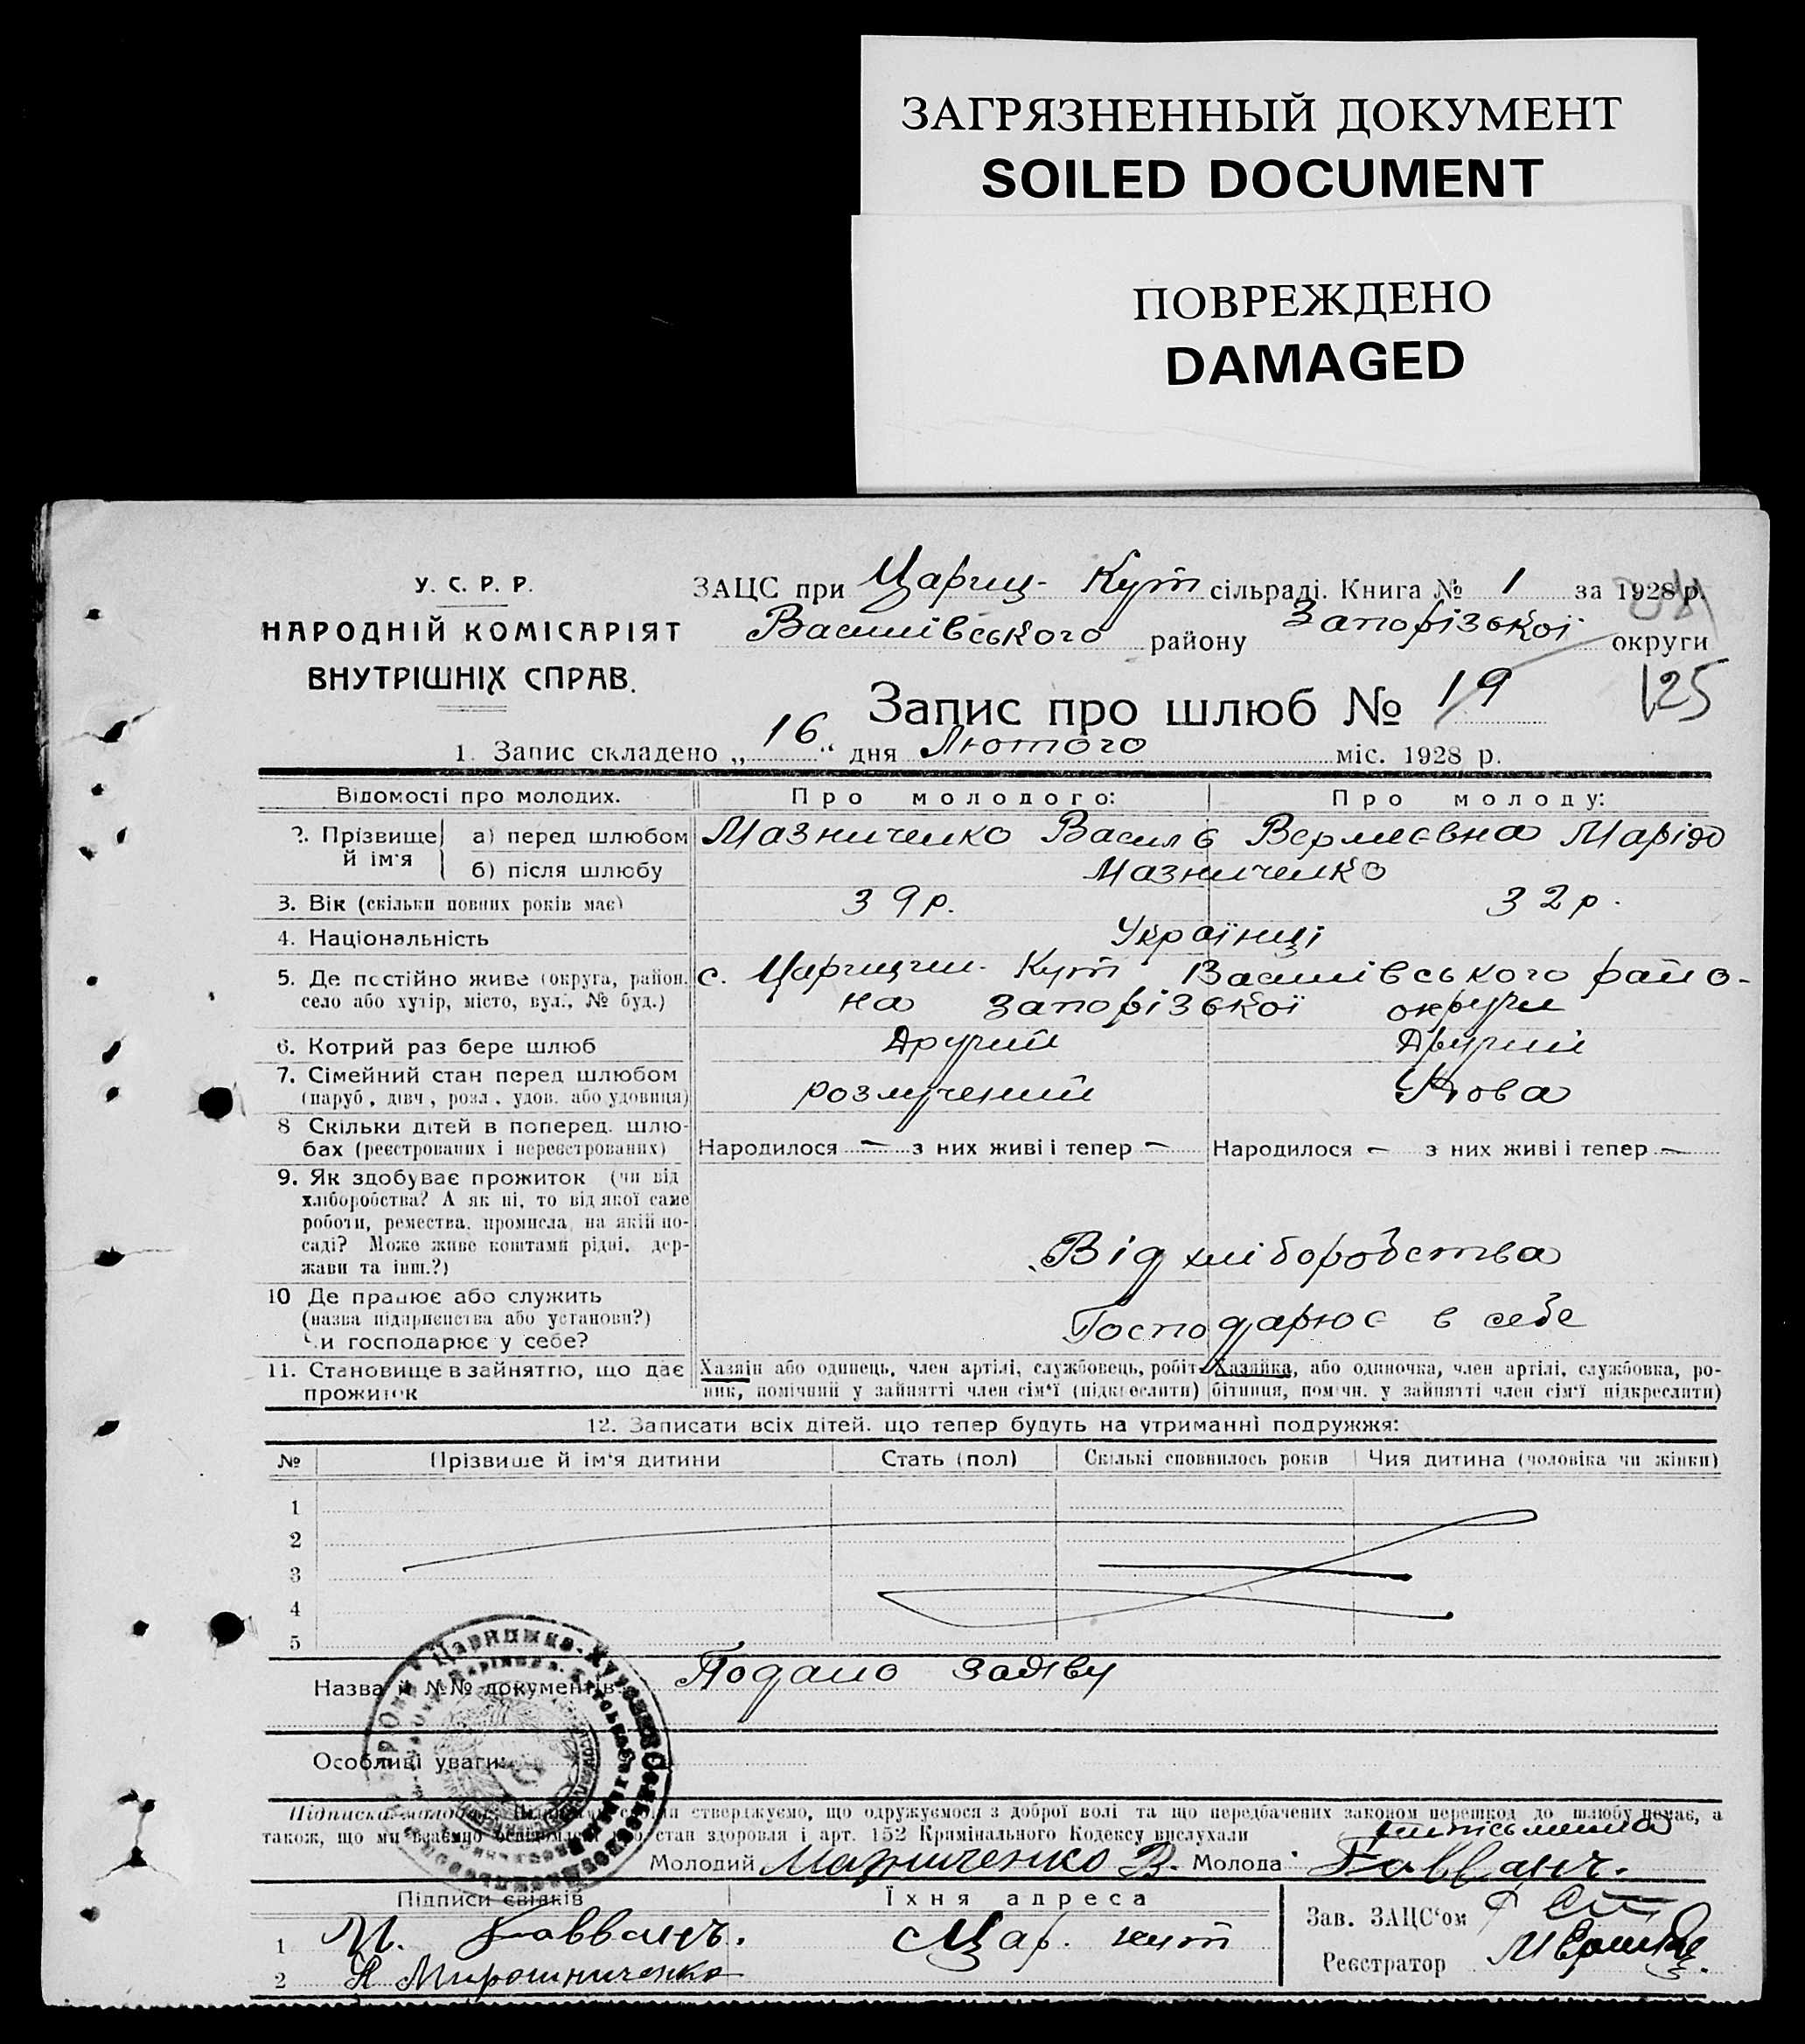 ЗАГРЯЗНЕННЫЙ ДОКУМЕНТ
SOILED DOCUMENT
ПОВРЕЖДЕНО
DAMAGED
У. С. Р. Р.
НАРОДНІЙ КОМІСАРІЯТ
ВНУТРІШНІХ СПРАВ.
ЗАЦС при Цариц- Кут сільраді. Книга № 1 за 1928 р.
Василівського району Запорізької округи
Запис про шлюб № 19
125
1. Запис складено „16“ дня Лютого міс. 1928 р.
Відомості про молодих. Про молодого: Про молоду:
2. Прізвище й ім'я а) перед шлюбом Мазниченко Василь Марію
б) після шлюбу Мазниченко
3. Вік (скільки повних років має) 39 р. 32 р.
4. Національність Українці
5. Де постійно живе (округа, район, с. Царицин. Кут Василівського райо-
село або хутір, місто, вул., № буд.) на Запорізької округи
6. Котрий раз бере шлюб Другий Другий
7. Сімейний стан перед шлюбом
(паруб., дівч., розл., удов. або удовиця) розлучений Удова
8 Скільки дітей в поперед. шлю-
бах (реєстрованих і нереєстрованих) Народилося — з них живі і тепер — Народилося — з них живі і тепер —
9. Як здобуває прожиток (чи від
хліборобства? А як ні, то від якої саме
роботи, ремества, промисла, на якій по-
саді? Може живе коштами рідні, дер-
жави та інш.?)
Від хліборобства
10 Де працює або служить
(назва підприємства або установи?)
Чи господарює у себе?
Господарює в себе
11. Становище в зайняттю, що дає прожиток
Хазяін або одинець, член артілі, службовець, робіт-
ник, помічний у зайнятті член сім'ї (підкреслити)
Хазяйка, або одиночка, член артілі, службовка, ро-
бітниця, помічн. у зайнятті член сім'ї підкреслити)
12. Записати всіх дітей. що тепер будуть на утриманні подружжя:
№ Прізвише й ім'я дитини Стать (пол) Скількі сповнилось років Чия дитина (чоловіка чи жінки)
1
2
3
4
5
Назва й №№ документів: Подано заяву
Особливі уваги:
Підписи молодих: стверджуємо, що одружуємося з доброї волі та що передбачених законом перешкод до шлюбу немає, а
також, що ми взаємно освідомлені про стан здоровля і арт. 152 Кримінального Кодексу вислухали
Молодий Мазниченко В. Молода
Підписи свідків Їхня адреса
1 Цар. кут
2 Мирошниченко
Зав. ЗАЦС'ом
Реєстратор